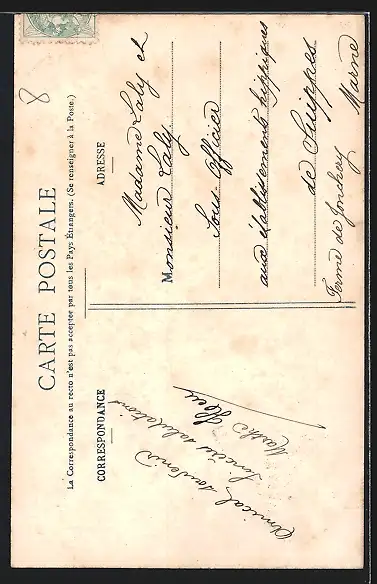 CARTE POSTALE
La Correspondance au recto n'est pas acceptée par tous les Pays Étrangers. (Se renseigner à la Poste.)
CORRESPONDANCE
Amical souvenir
Sincères salutations
ADRESSE
Madame Laly et
Monsieur Laly
Sous-Officier
aux établissements hippiques
de Suippes
Ferme de Jonchery Marne
8